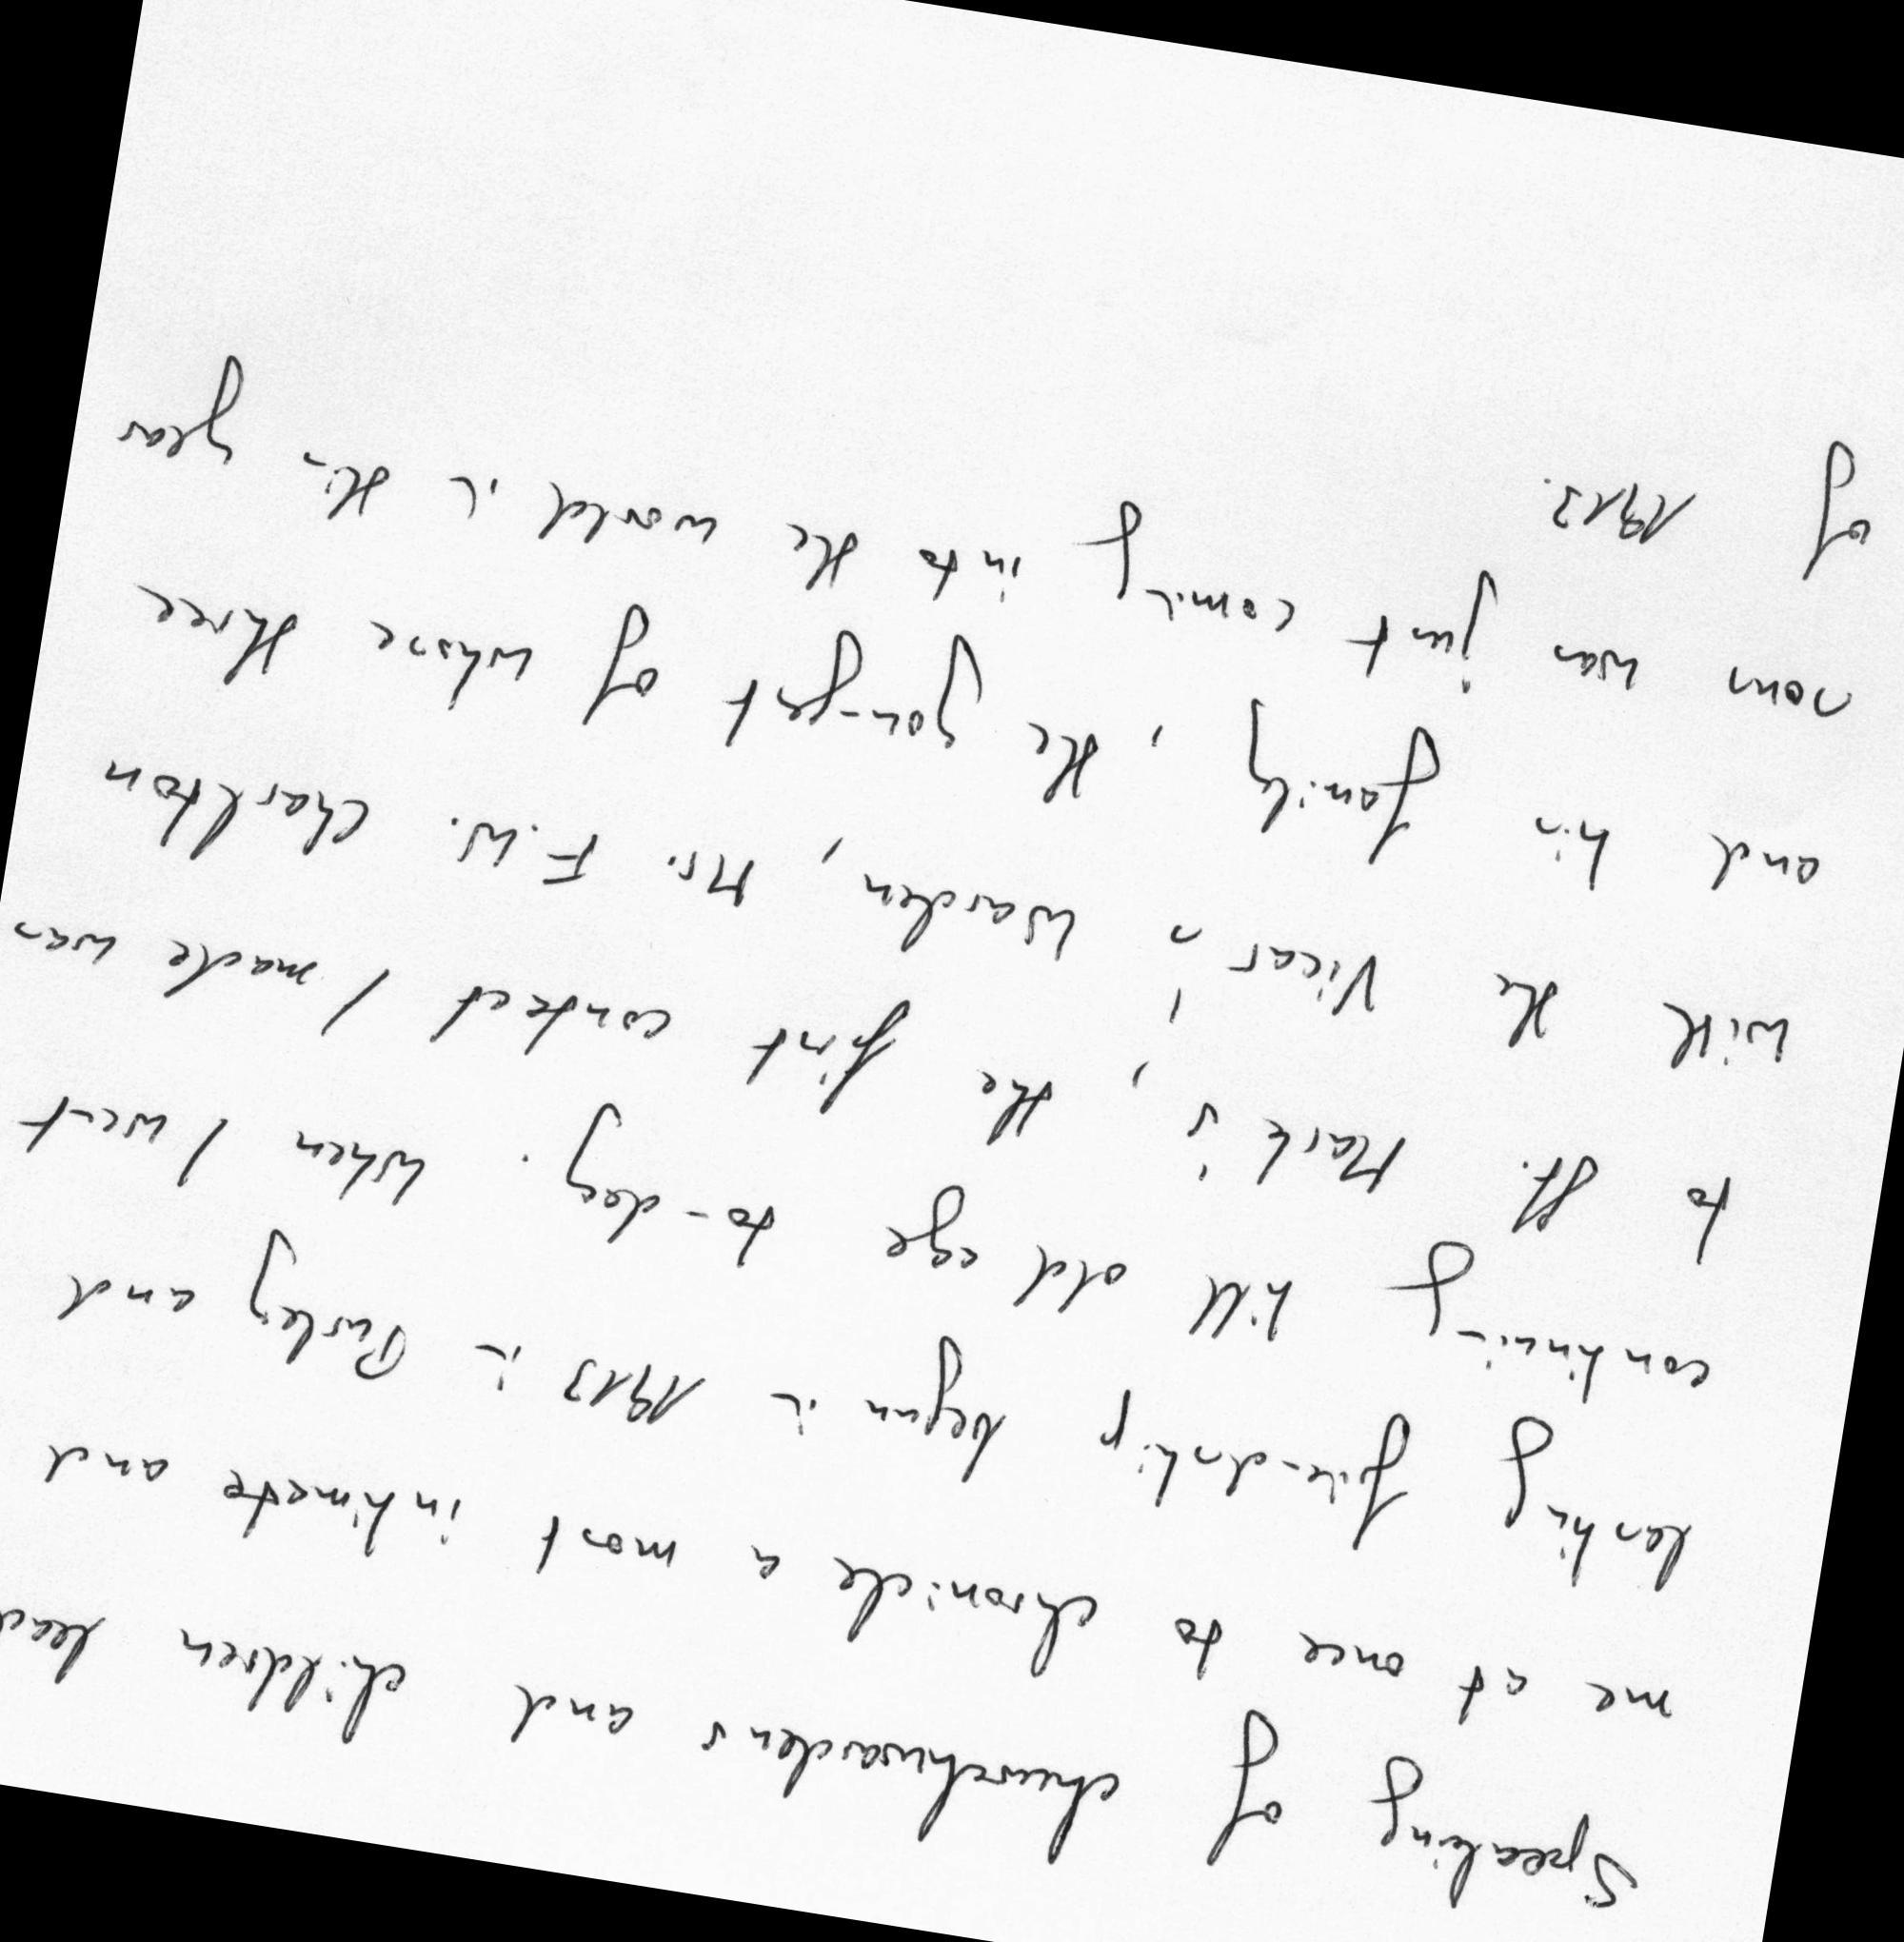 Speaking of churchwardens and children lead
me at once to chronicle a most intimate and
lasting friendship begun in 1913 in Purley and
continuing till old age to-day. When I went
to St. Mark's, the first contact I made was
with the Vicar's Warden, Mr. F.W. Charlton
and his family, the youngest of whose three
sons was just coming into the world in this year
of 1913.